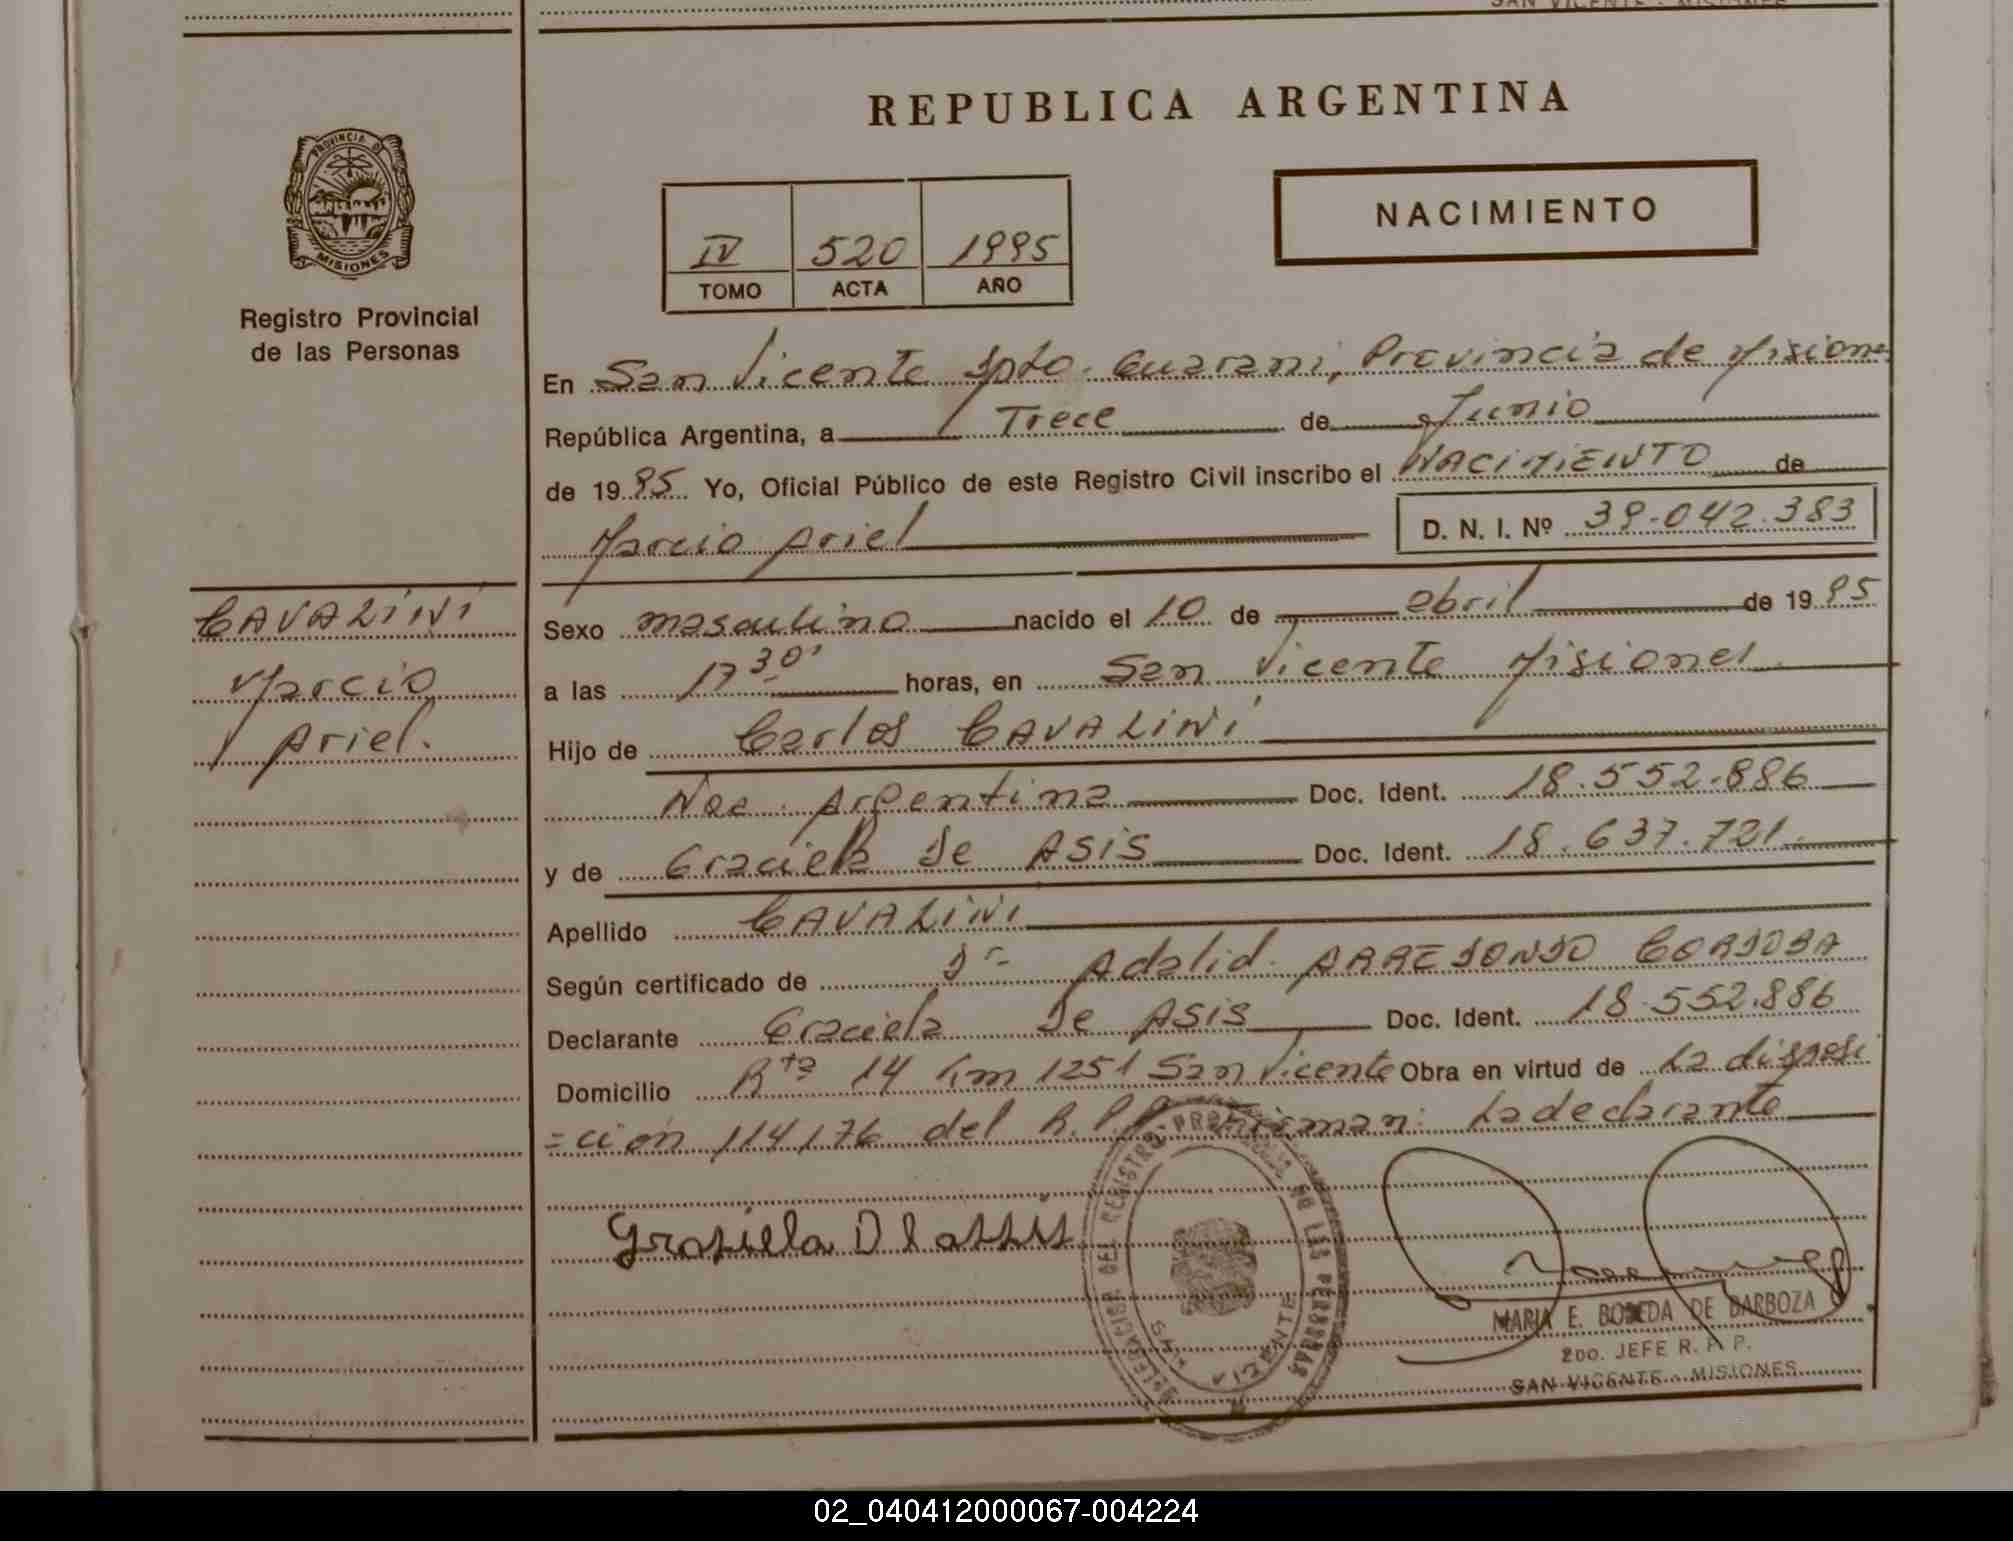 SAN VICENTE - MISIONES
REPUBLICA ARGENTINA
PROVINCIA DE
MISIONES
Registro Provincial
de las Personas
NACIMIENTO
IV 520 1995
TOMO ACTA AÑO
En San Vicente Dpto. Guarani, Provincia de Misiones
República Argentina, a Trece de Junio
de 1995 Yo, Oficial Público de este Registro Civil inscribo el NACIMIENTO de
Marcio Ariel D. N. I. Nº 39.042.383
CAVALINI
Marcio
Ariel.
Sexo masculino nacido el 10 de abril de 1995
a las 17 30' horas, en San Vicente Misiones
Hijo de Carlos CAVALINI
Nac. Argentina Doc. Ident. 18.552.886
y de Graciela De ASIS Doc. Ident. 18.637.721.
Apellido CAVALINI
Según certificado de Dr. Adalid ARREDONDO CORDOBA
Declarante Graciela De ASIS Doc. Ident. 18.552.886
Domicilio Rta 14 Km 1251 San Vicente Obra en virtud de La disposi
=ción 114/76 del R.P.P. Firman: La declarante
Grasiela D l assis
DELEGACION DEL REGISTRO PROVINCIAL DE LAS PERSONAS
SAN VICENTE
MARIA E. BOVEDA DE BARBOZA
2DO. JEFE R. P. P.
SAN VICENTE - MISIONES
02_040412000067-004224